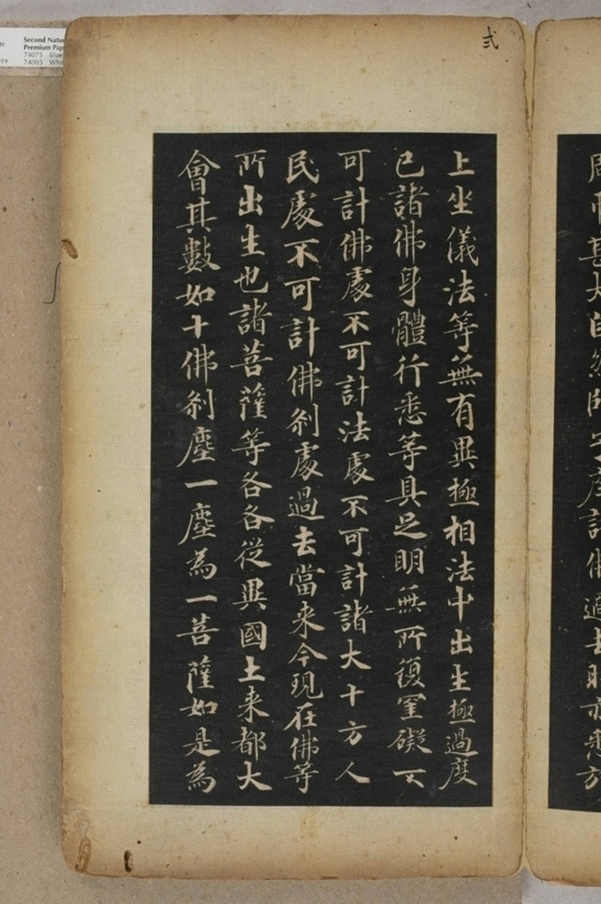 上坐儀法等無有異極相法中出生極過度
已諸佛身體行悉等具足眀無所復罣礙不
可計佛處不可計法處不可計諸大十方人
民處不可計佛剎處過去當来今現在佛等
所出生也諸菩薩等各各從異國土来都大
會其數如十佛剎塵一塵為一菩薩如是為
弍
Second Natu
Premium Pap
74075
74085 Whi